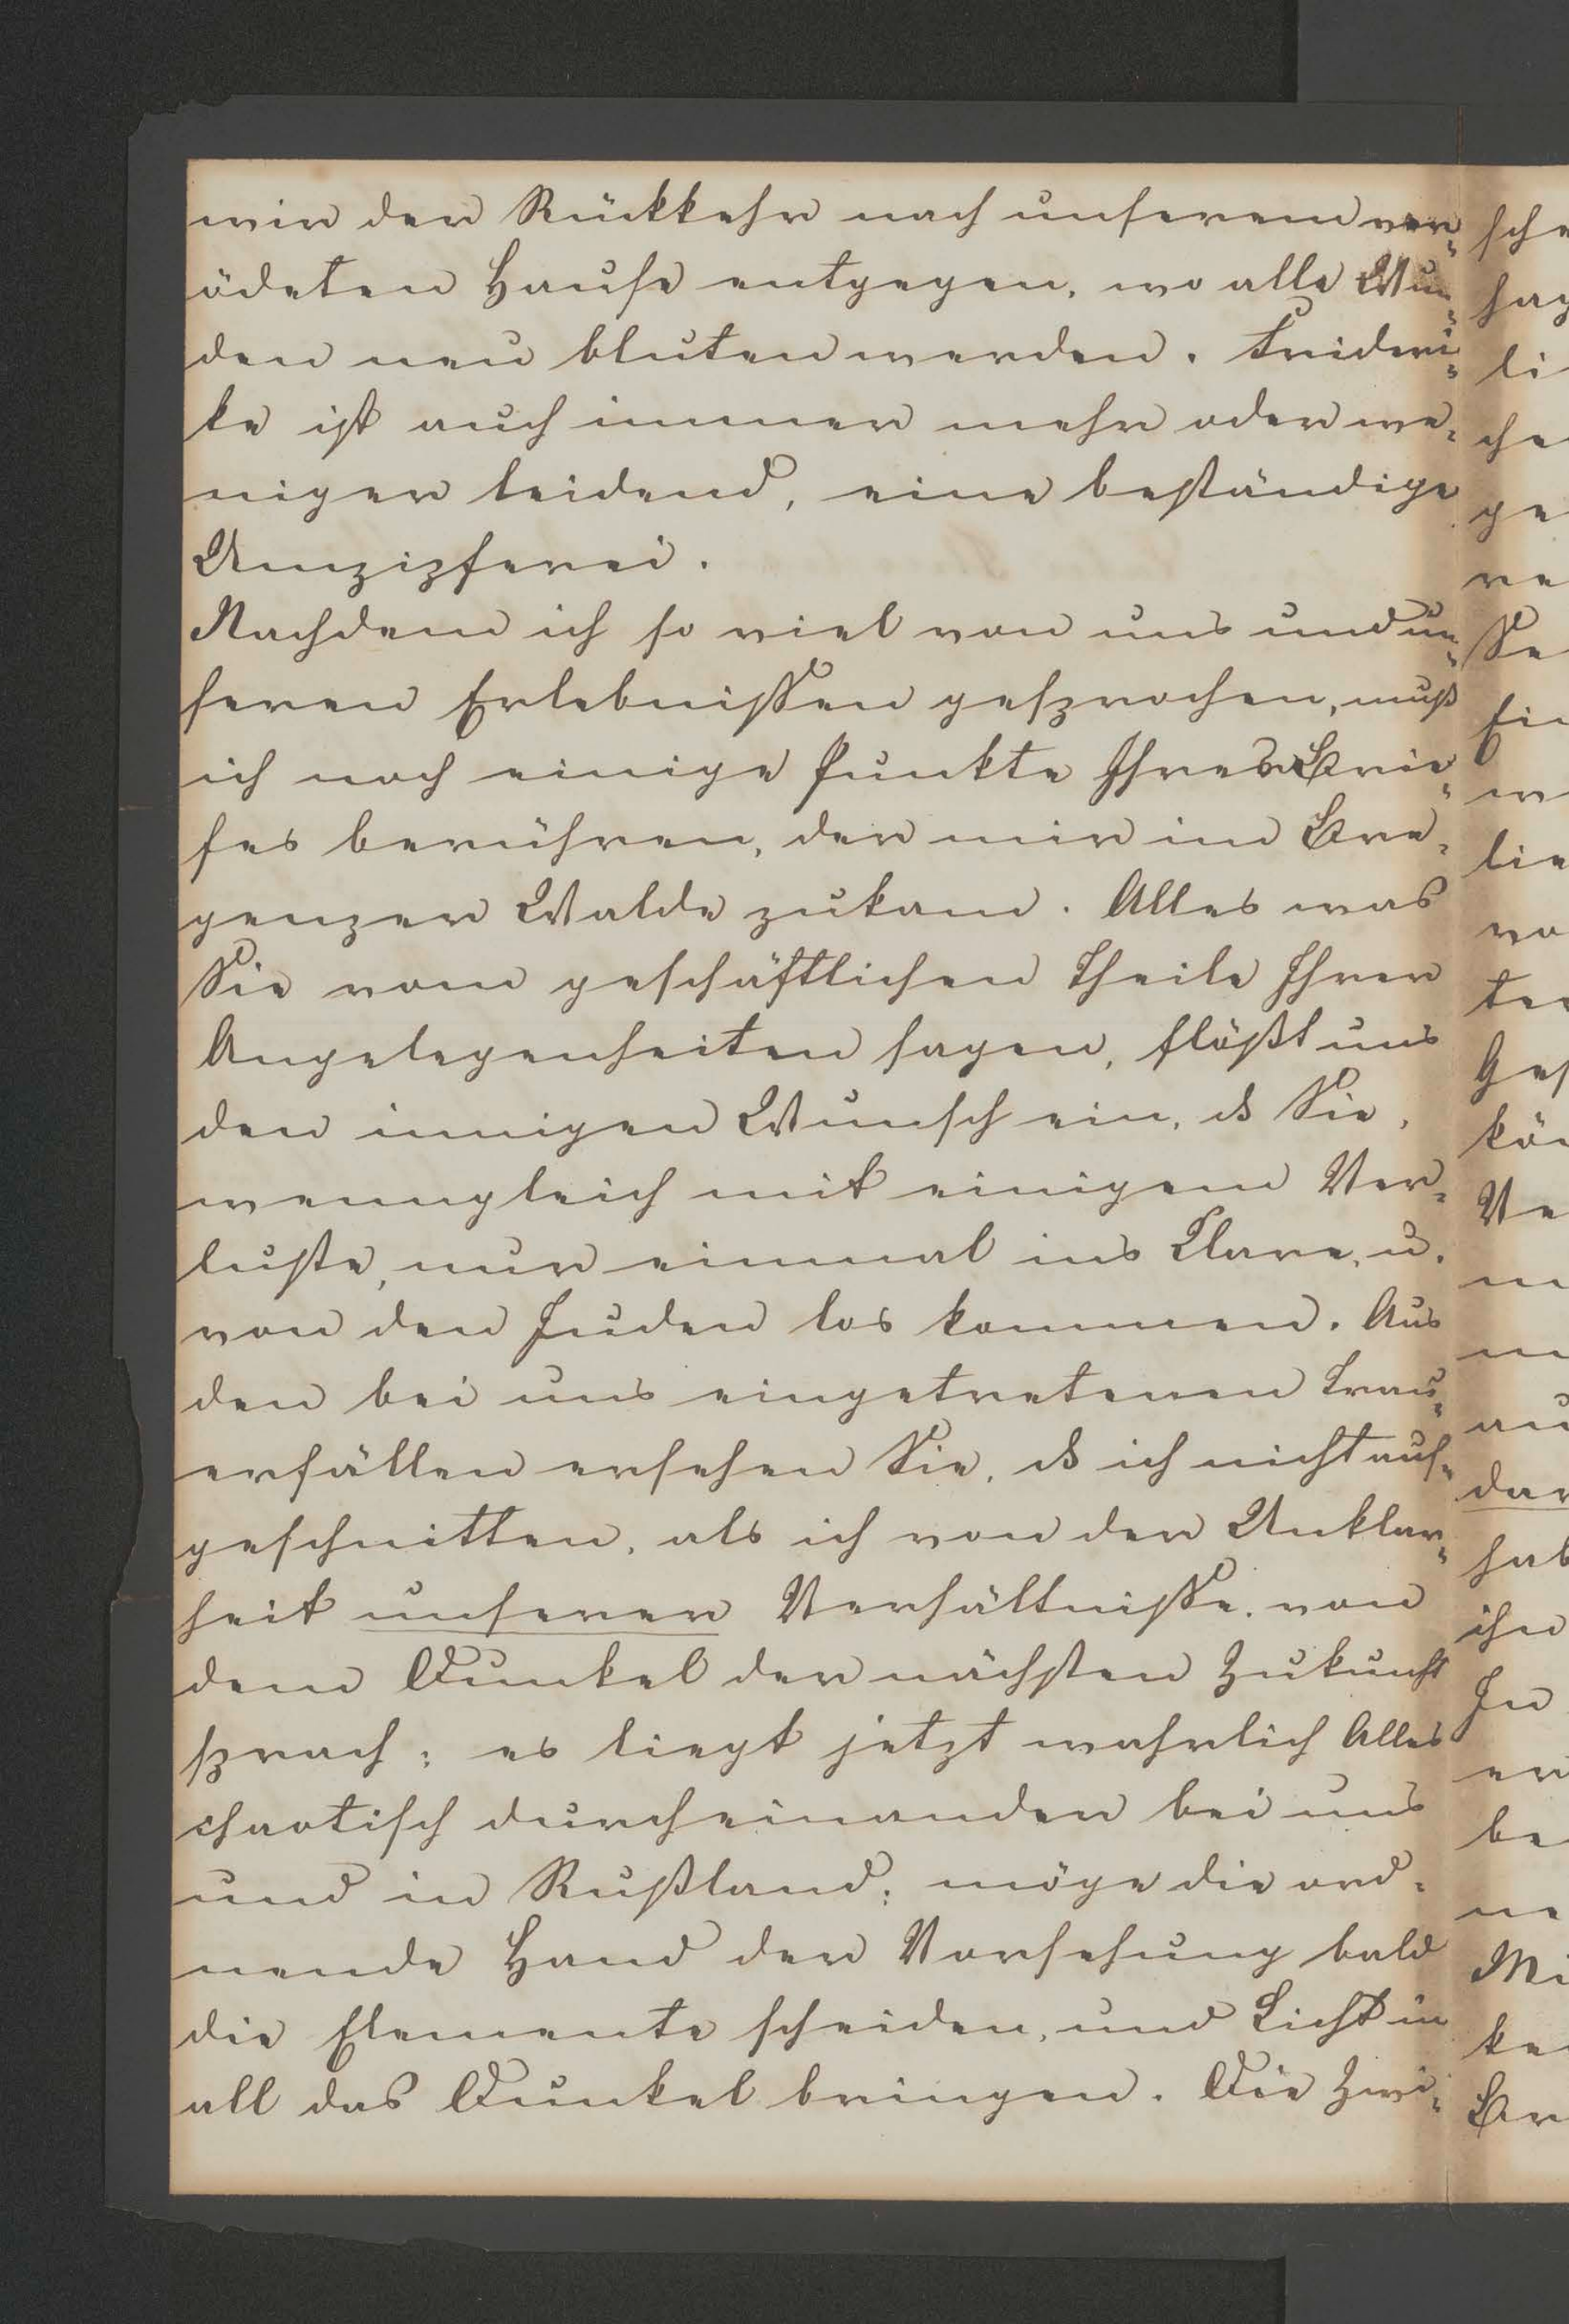 wir der Rückkehr nach unserem ver-
ödeten Hause entgegen, wo alle Wun-
den neu bluten werden. Frideri-
ke ist auch immer mehr oder we-
niger leidend, eine beständige
Umzipferei.
Nachdem ich so viel von uns und un-
seren Erlebnissen gesprochen, muß
ich noch einige Punkte Ihres Brie-
fes berühren, der mir im Bre-
genzer Walde zukam. Alles was
Sie vom geschäftlichen Theile Ihrer
Angelegenheiten sagen, flößt uns
den innigen Wunsch ein, ds Sie,
wenngleich mit einigem Ver-
luste, nur einmal ins Clare, u.
von den Juden los kommen. Aus
den bei uns eingetretenen Trau-
erfällen ersehen Sie, ds ich nicht auf-
geschnitten, als ich von der Unklar-
heit unserer Verhältnisse, von
dem Dunkel der nächsten Zukunft
sprach; es liegt jetzt wahrlich Alles
chaotisch durcheinander bei uns
und in Rußland; möge die ord-
nende Hand der Vorsehung bald
die Elemente scheiden, und Licht in
all das Dunkel bringen. Die Zwi-